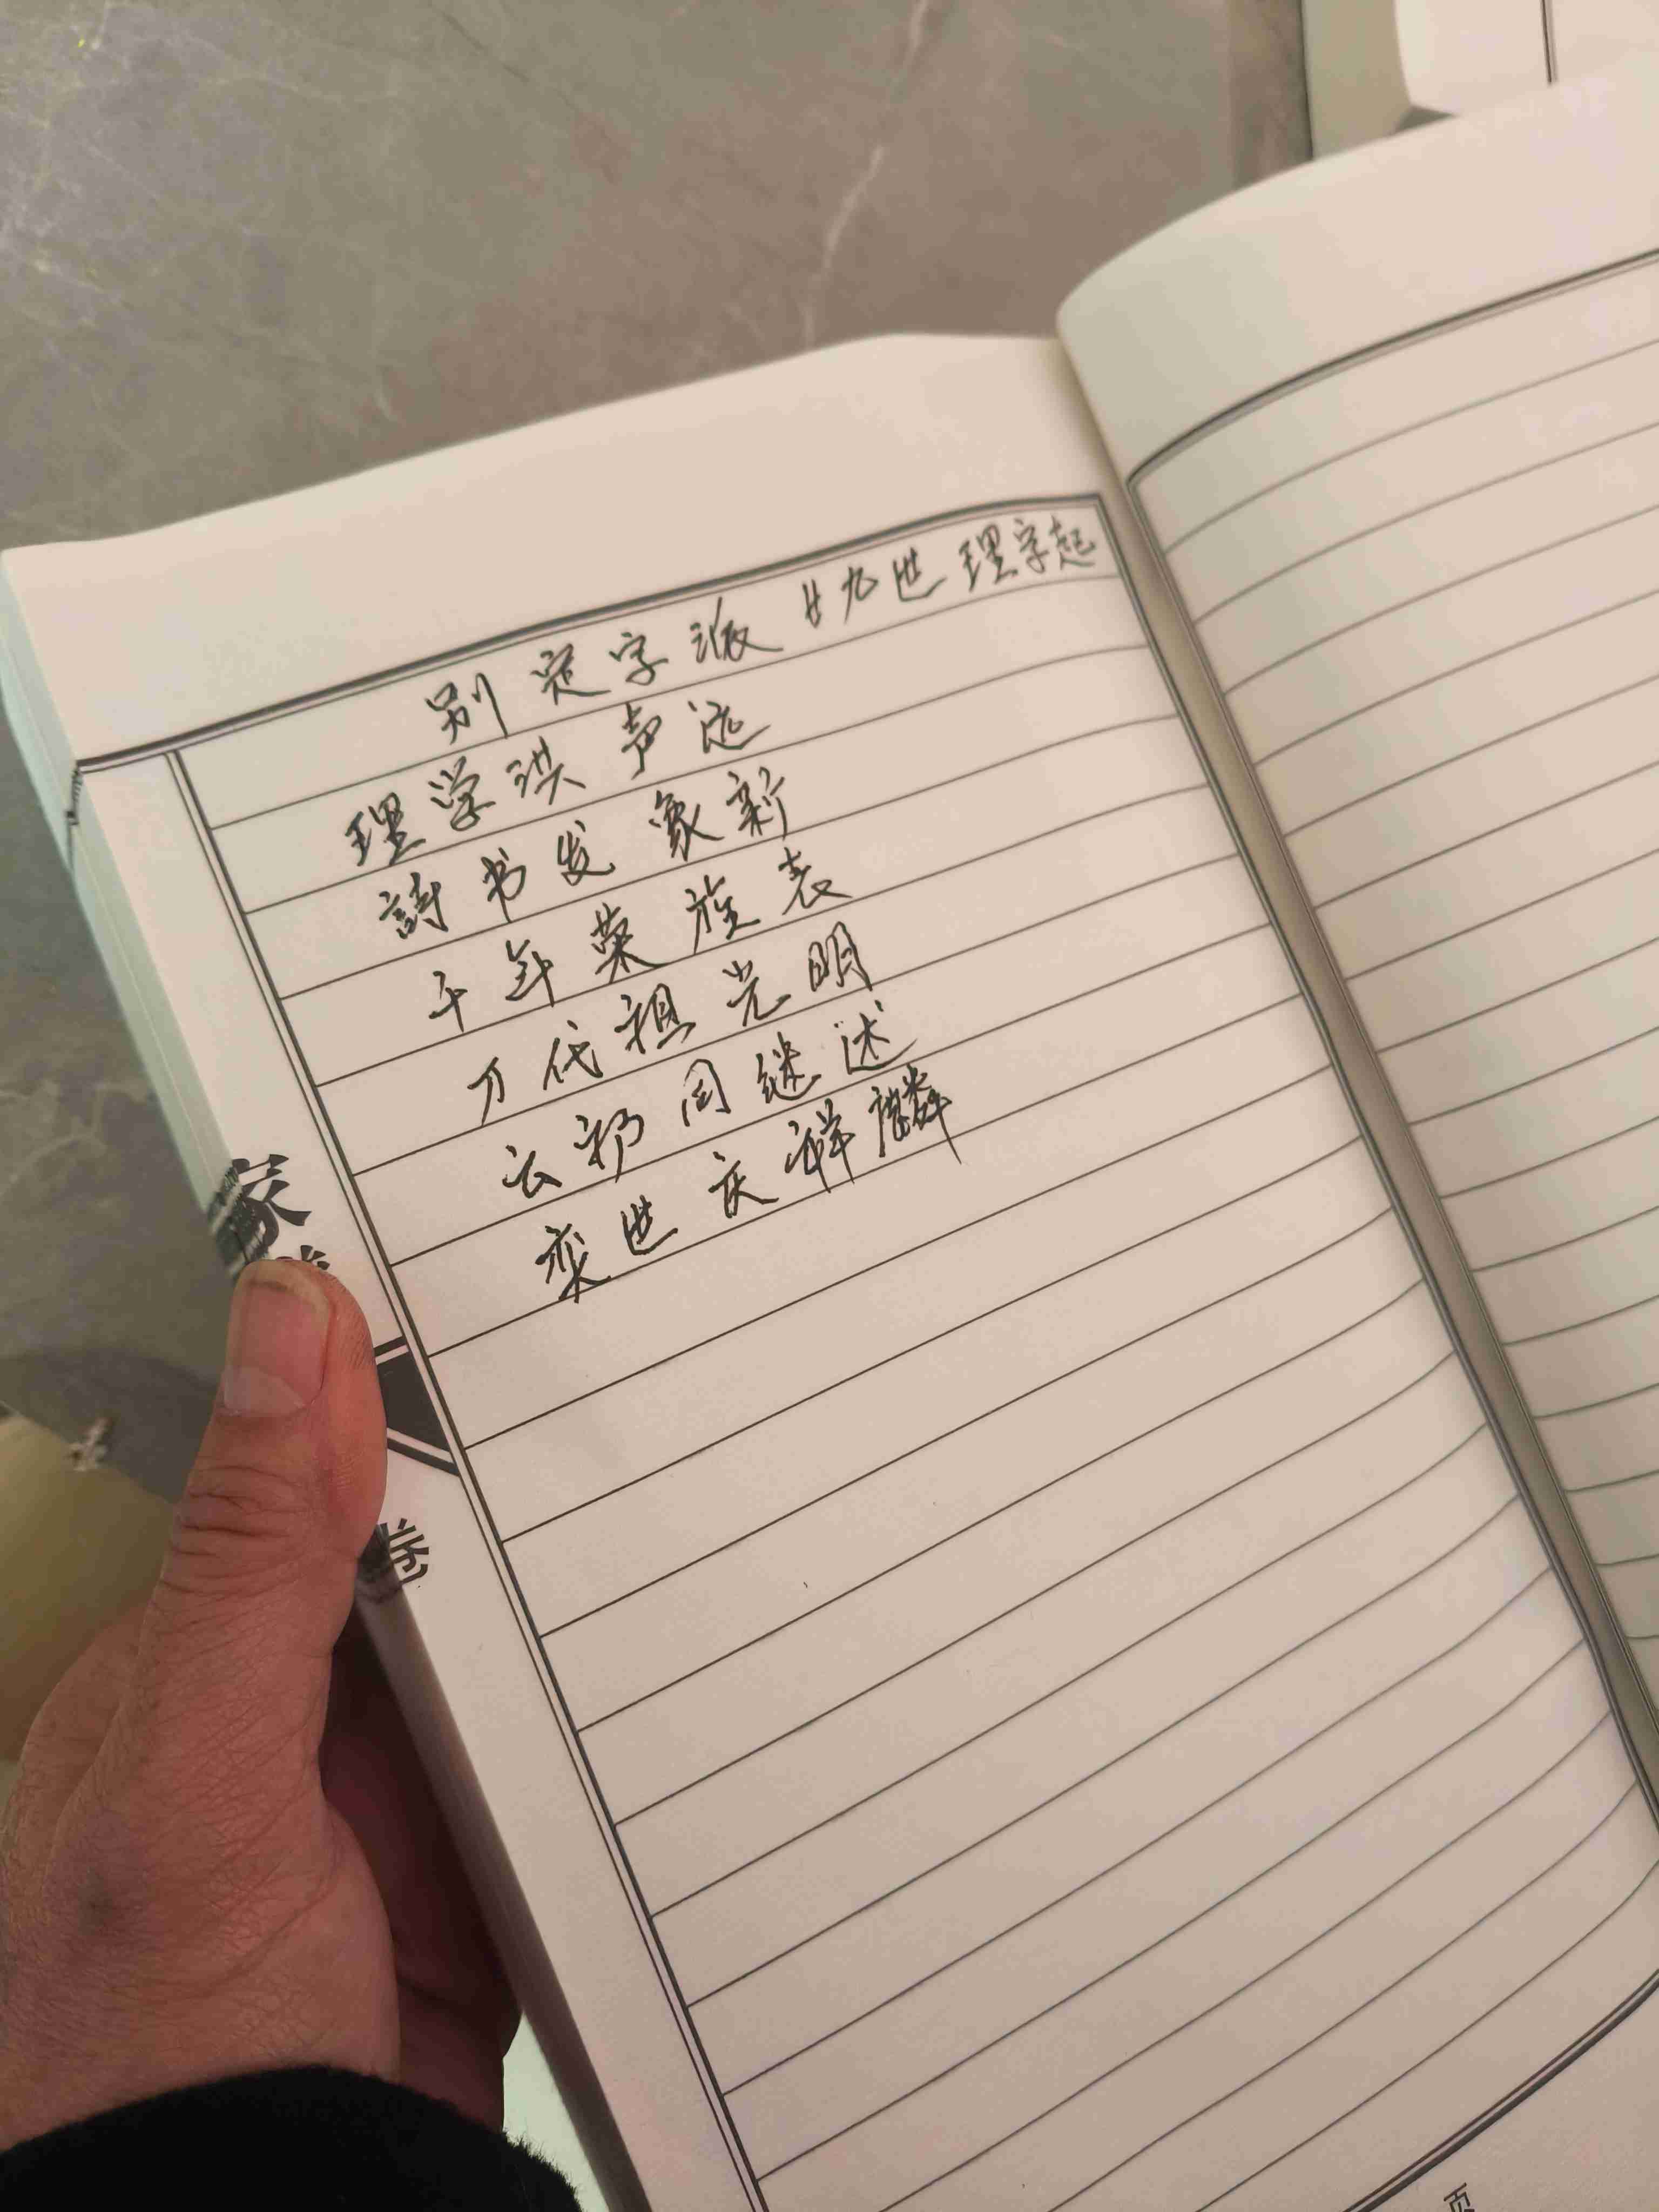 别定字派 廿九世理字起
理学洪声远
詩书发象新
千年荣族表
万代祖光明
云礽同继述
奕世庆祥麟
家
卷
页